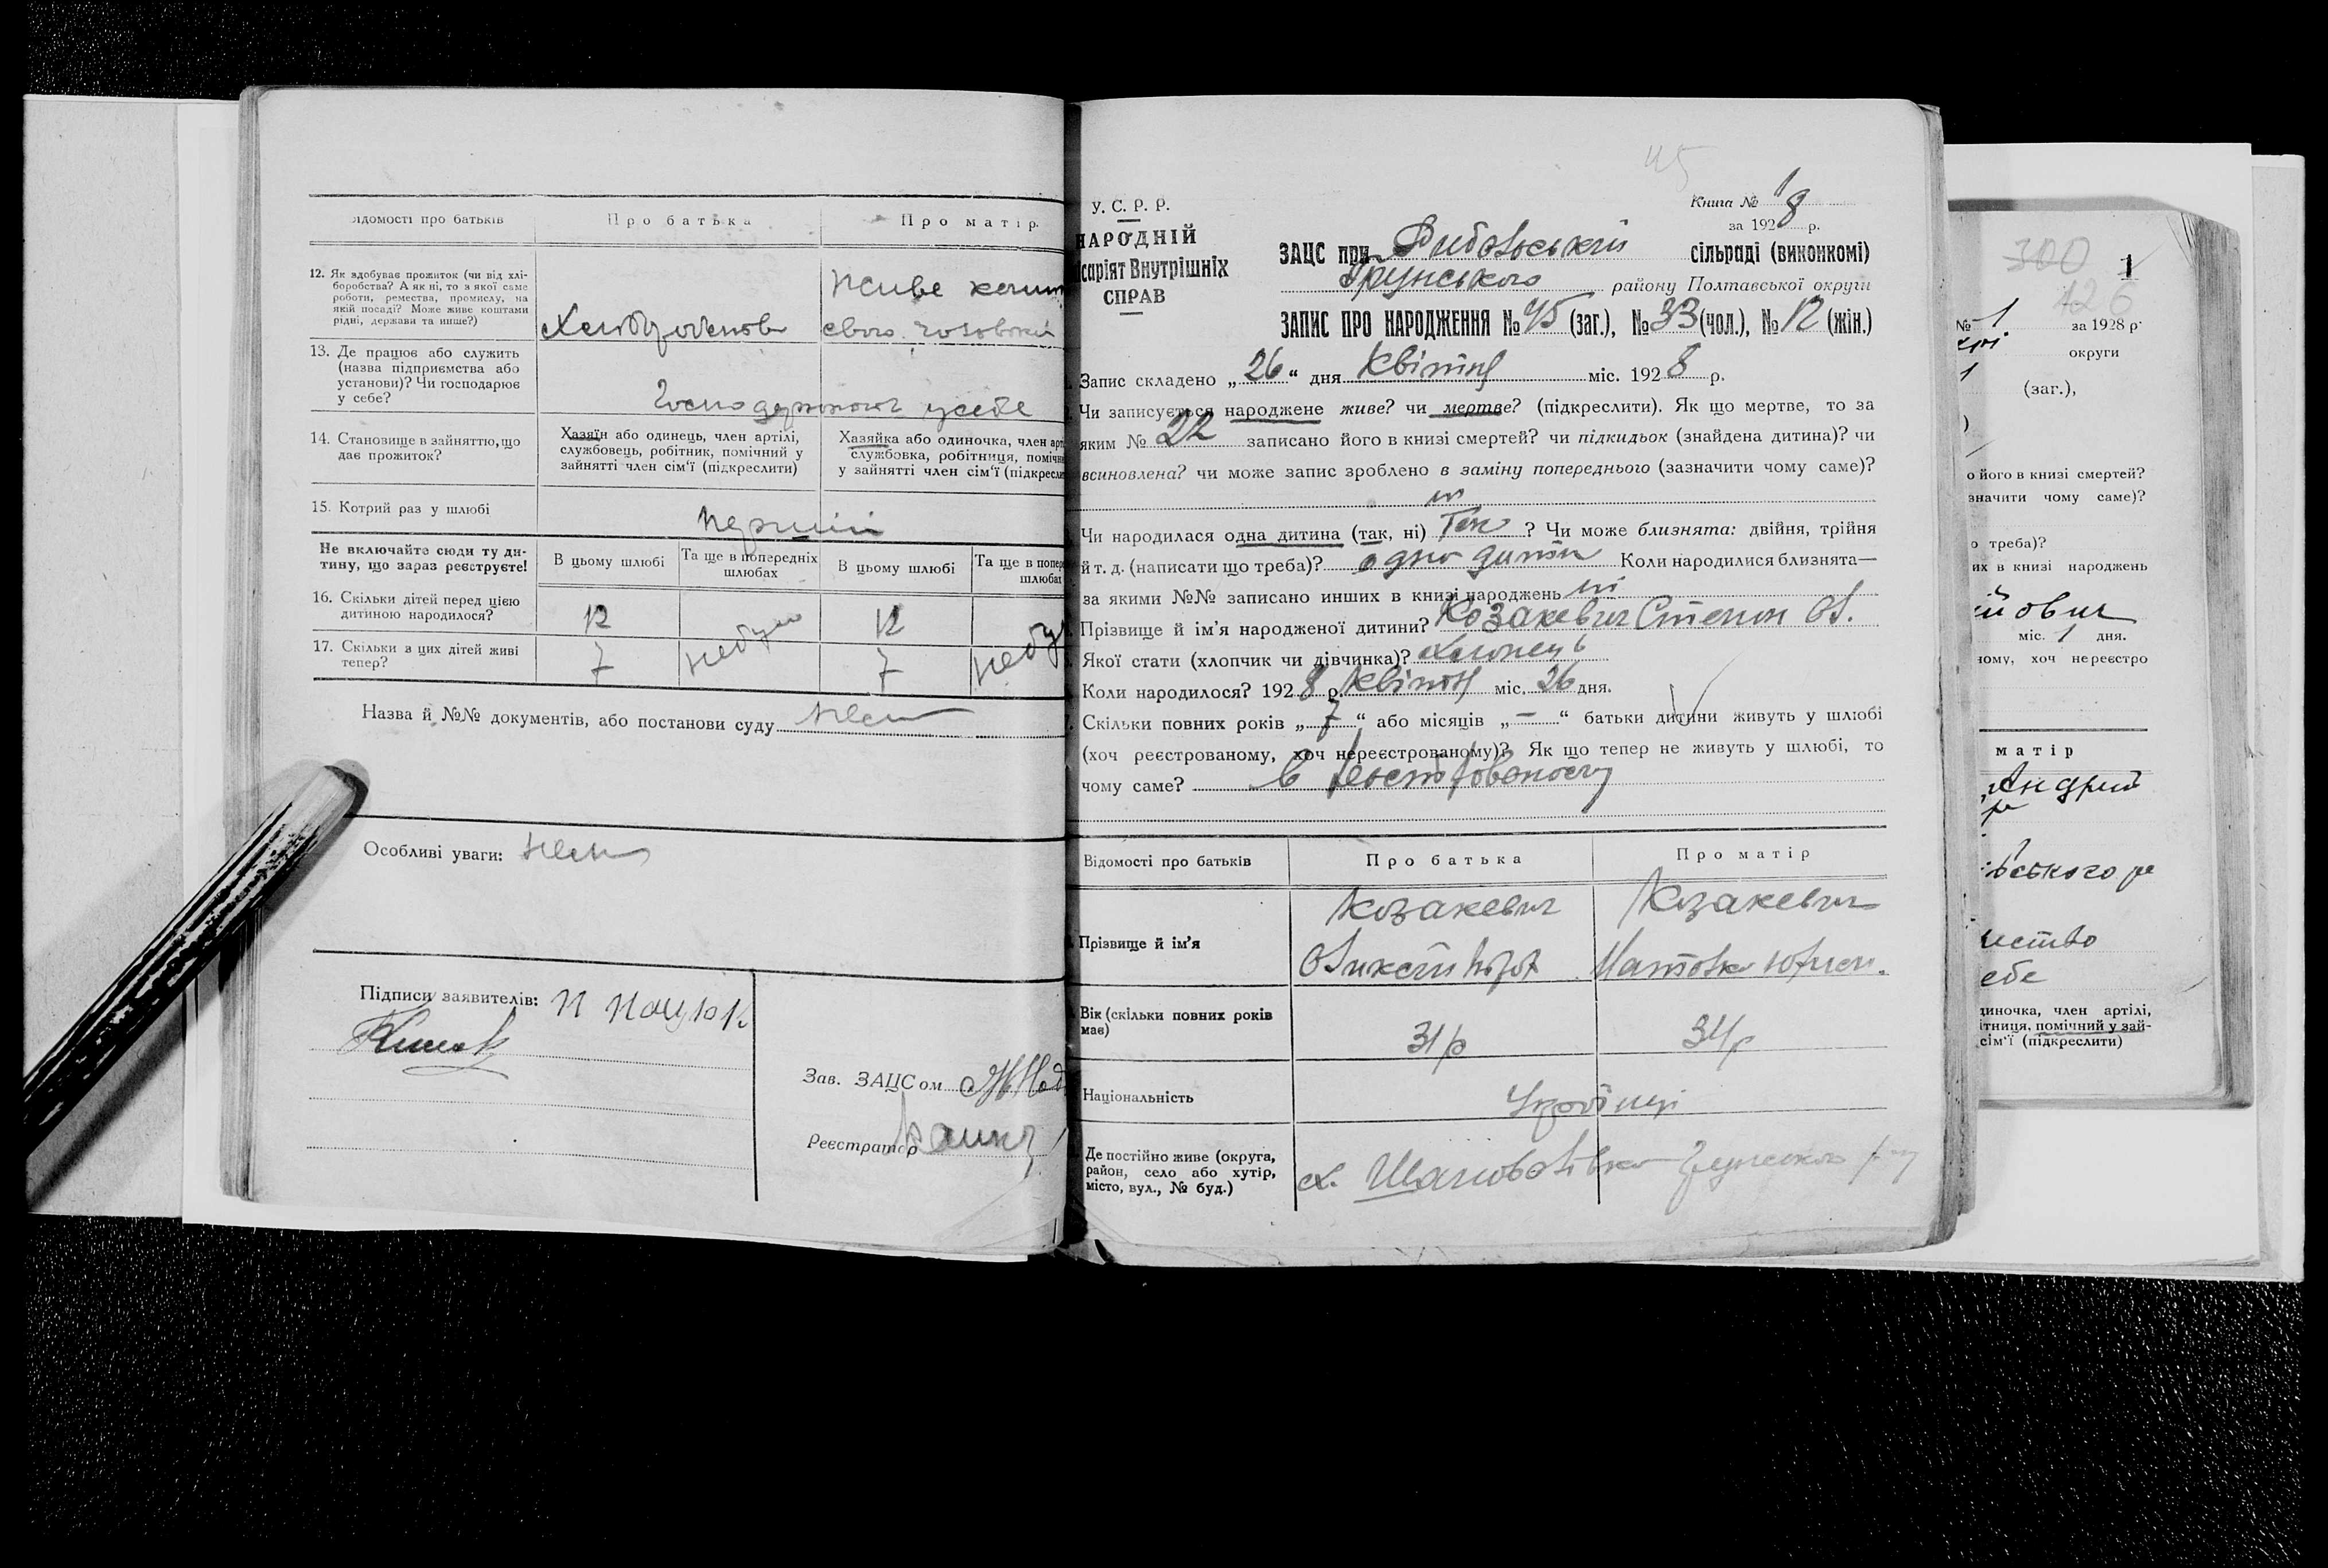 Відомості про батьків
Про батька
Про матір.
12. Як здобуває прожиток (чи від хлі-
боробства? А як ні, то з якої саме
роботи, ремества, промислу, на
якій посаді? Може живе коштами
рідні, держави та инше?)
Живе
свого
13. Де працює або служить
(назва підприємства або
установи)? Чи господарює
у себе?
у себе
14. Становище в зайняттю, що
дає прожиток?
Хазяїн або одинець, член артілі,
службовець, робітник, помічний у
зайнятті член сім'ї (підкреслити)
Хазяйка або одиночка, член арт
службовка, робітниця, помічн
у зайнятті член сім'ї (підкресли
15. Котрий раз у шлюбі
Не включайте сюди ту ди-
тину, що зараз реєструєте!
В цьому шлюбі
Та ще в попередніх
шлюбах
В цьому шлюбі
Та ще в попер
шлюбах
16. Скільки дітей перед цією
дитиною народилося?
12
12
17. Скільки з цих дітей живі
тепер?
7
небуло
7
небу
Назва й №№ документів, або постанови суду
Особливі уваги:
Підписи заявителів:
Зав. ЗАЦСом
Реєстратор
45
У. С. Р. Р.
НАРОДНІЙ
саріят Внутрішніх
СПРАВ
Книга № 18
за 1928 р.
ЗАЦС при сільраді (виконкомі)
Грунського району Полтавської округи
ЗАПИС ПРО НАРОДЖЕННЯ № 45 (заг.), № 33 (чол.), № 12 (жін.)
Запис складено „26“ дня Квітня міс. 1928 р.
Чи записується народжене живе? чи мертве? (підкреслити). Як що мертве, то за
яким № 22 записано його в книзі смертей? чи підкидьок (знайдена дитина)? чи
всиновлена? чи може запис зроблено в заміну попереднього (зазначити чому саме)?
ні
Чи народилася одна дитина (так, ні) Так ? Чи може близнята: двійня, трійня
й т. д. (написати що треба)? одно Коли народилися близнята—
за якими №№ записано инших в книзі народжень ні
Прізвище й ім'я народженої дитини? Козакевич Степан Ол.
Якої стати (хлопчик чи дівчинка)? хлопець
Коли народилося? 1928 р. Квітня міс. 26 дня.
Скільки повних років „7“ або місяців „—“ батьки дитини живуть у шлюбі
(хоч реєстрованому, хоч нереєстрованому)? Як що тепер не живуть у шлюбі, то
чому саме? в
Відомості про батьків
Про батька
Про матір
Прізвище й ім'я
Козакевич
Козакевич
Вік (скільки повних років
має)
31 р
34 р
Національність
Українці
Де постійно живе (округа,
район, село або хутір,
місто, вул., № буд.)
х.
300
1
426
№ 1 за 1928 р.
округи
1 (заг.),
о його в книзі смертей?
значити чому саме)?
о треба)?
их в книзі народжень
йович
міс. 1 дня.
ному, хоч нереєстро
матір
Андрій
ського ра
ство
ебе
диночка, член артілі,
ітниця, помічний у зай-
сім'ї (підкреслити)